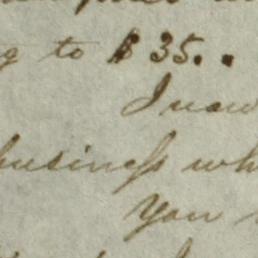 to $35..
I now
business wh
You